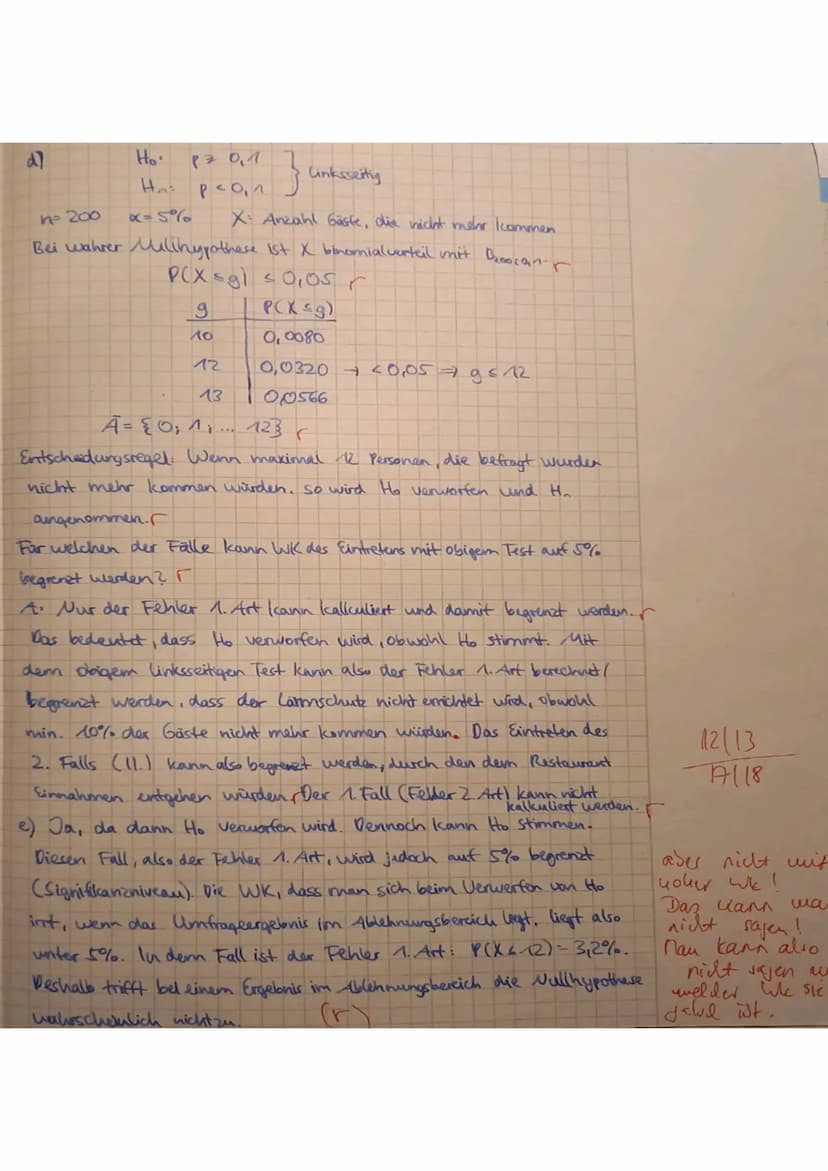 d) H₀: p ≥ 0,1 } linksseitig
H₁: p < 0,1
n= 200 α= 5% X: Anzahl Gäste, die nicht mehr kommen
Bei wahrer Nullhypothese ist X binomialverteilt mit B₂₀₀;₀,₁. r
P(X ≤ g) ≤ 0,05 r
g | P(X ≤ g)
10 | 0,0080
12 | 0,0320 → < 0,05 ⇒ g ≤ 12
13 | 0,0566
Ā = {0; 1; ... 12} r
Entscheidungsregel: Wenn maximal 12 Personen, die befragt wurden
nicht mehr kommen würden. so wird H₀ verworfen und H₁
angenommen. r
Für welchen der Fälle kann WK des Eintretens mit obigem Test auf 5%
begrenzt werden? r
A: Nur der Fehler 1. Art kann kalkuliert und damit begrenzt werden. r
Das bedeutet, dass H₀ verworfen wird, obwohl H₀ stimmt. Mit
dem obigem linksseitigen Test kann also der Fehler 1. Art berechnet/
begrenzt werden, dass der Lärmschutz nicht errichtet wird, obwohl
min. 10% der Gäste nicht mehr kommen würden. Das Eintreten des
2. Falls (II.) kann also begrenzt werden, durch den dem Restaurant
Einnahmen entgehen würden. r Der 1. Fall (Fehler 2. Art) kann nicht
kalkuliert werden. r
12|13
17|18
e) Ja, da dann H₀ verworfen wird. Dennoch kann H₀ stimmen.
Diesen Fall, also der Fehler 1. Art, wird jedoch auf 5% begrenzt
(Signifikanzniveau). Die WK, dass man sich beim Verwerfen von H₀
irrt, wenn das Umfrageergebnis im Ablehnungsbereich liegt, liegt also
unter 5%. In dem Fall ist der Fehler 1. Art: P(X ≤ 12) = 3,2%.
Deshalb trifft bei einem Ergebnis im Ablehnungsbereich die Nullhypothese
wahrscheinlich nicht zu. (r)
aber nicht mit
hoher Wk!
Das kann ma
nicht sagen!
Man kann also
nicht sagen
welcher Wk sie
ist.